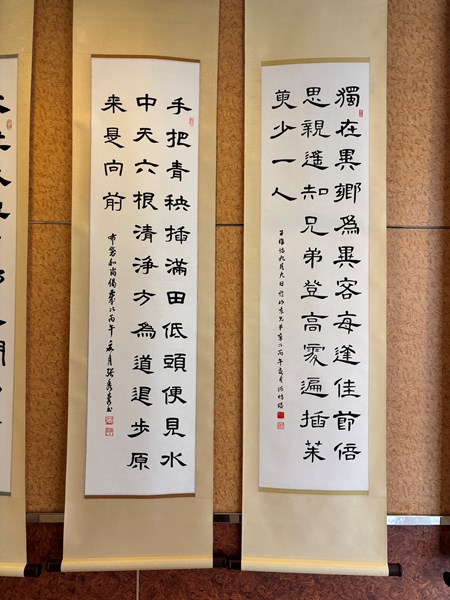 獨在異鄉爲異客每逢佳節倍
思親遙知兄弟登高處遍插茱
萸少一人
王維詩九月九日憶山東兄弟歲次丙午
手把青秧插滿田低頭便見水
中天六根清淨方為道退步原
来是向前
布袋和尚偈歲次丙午